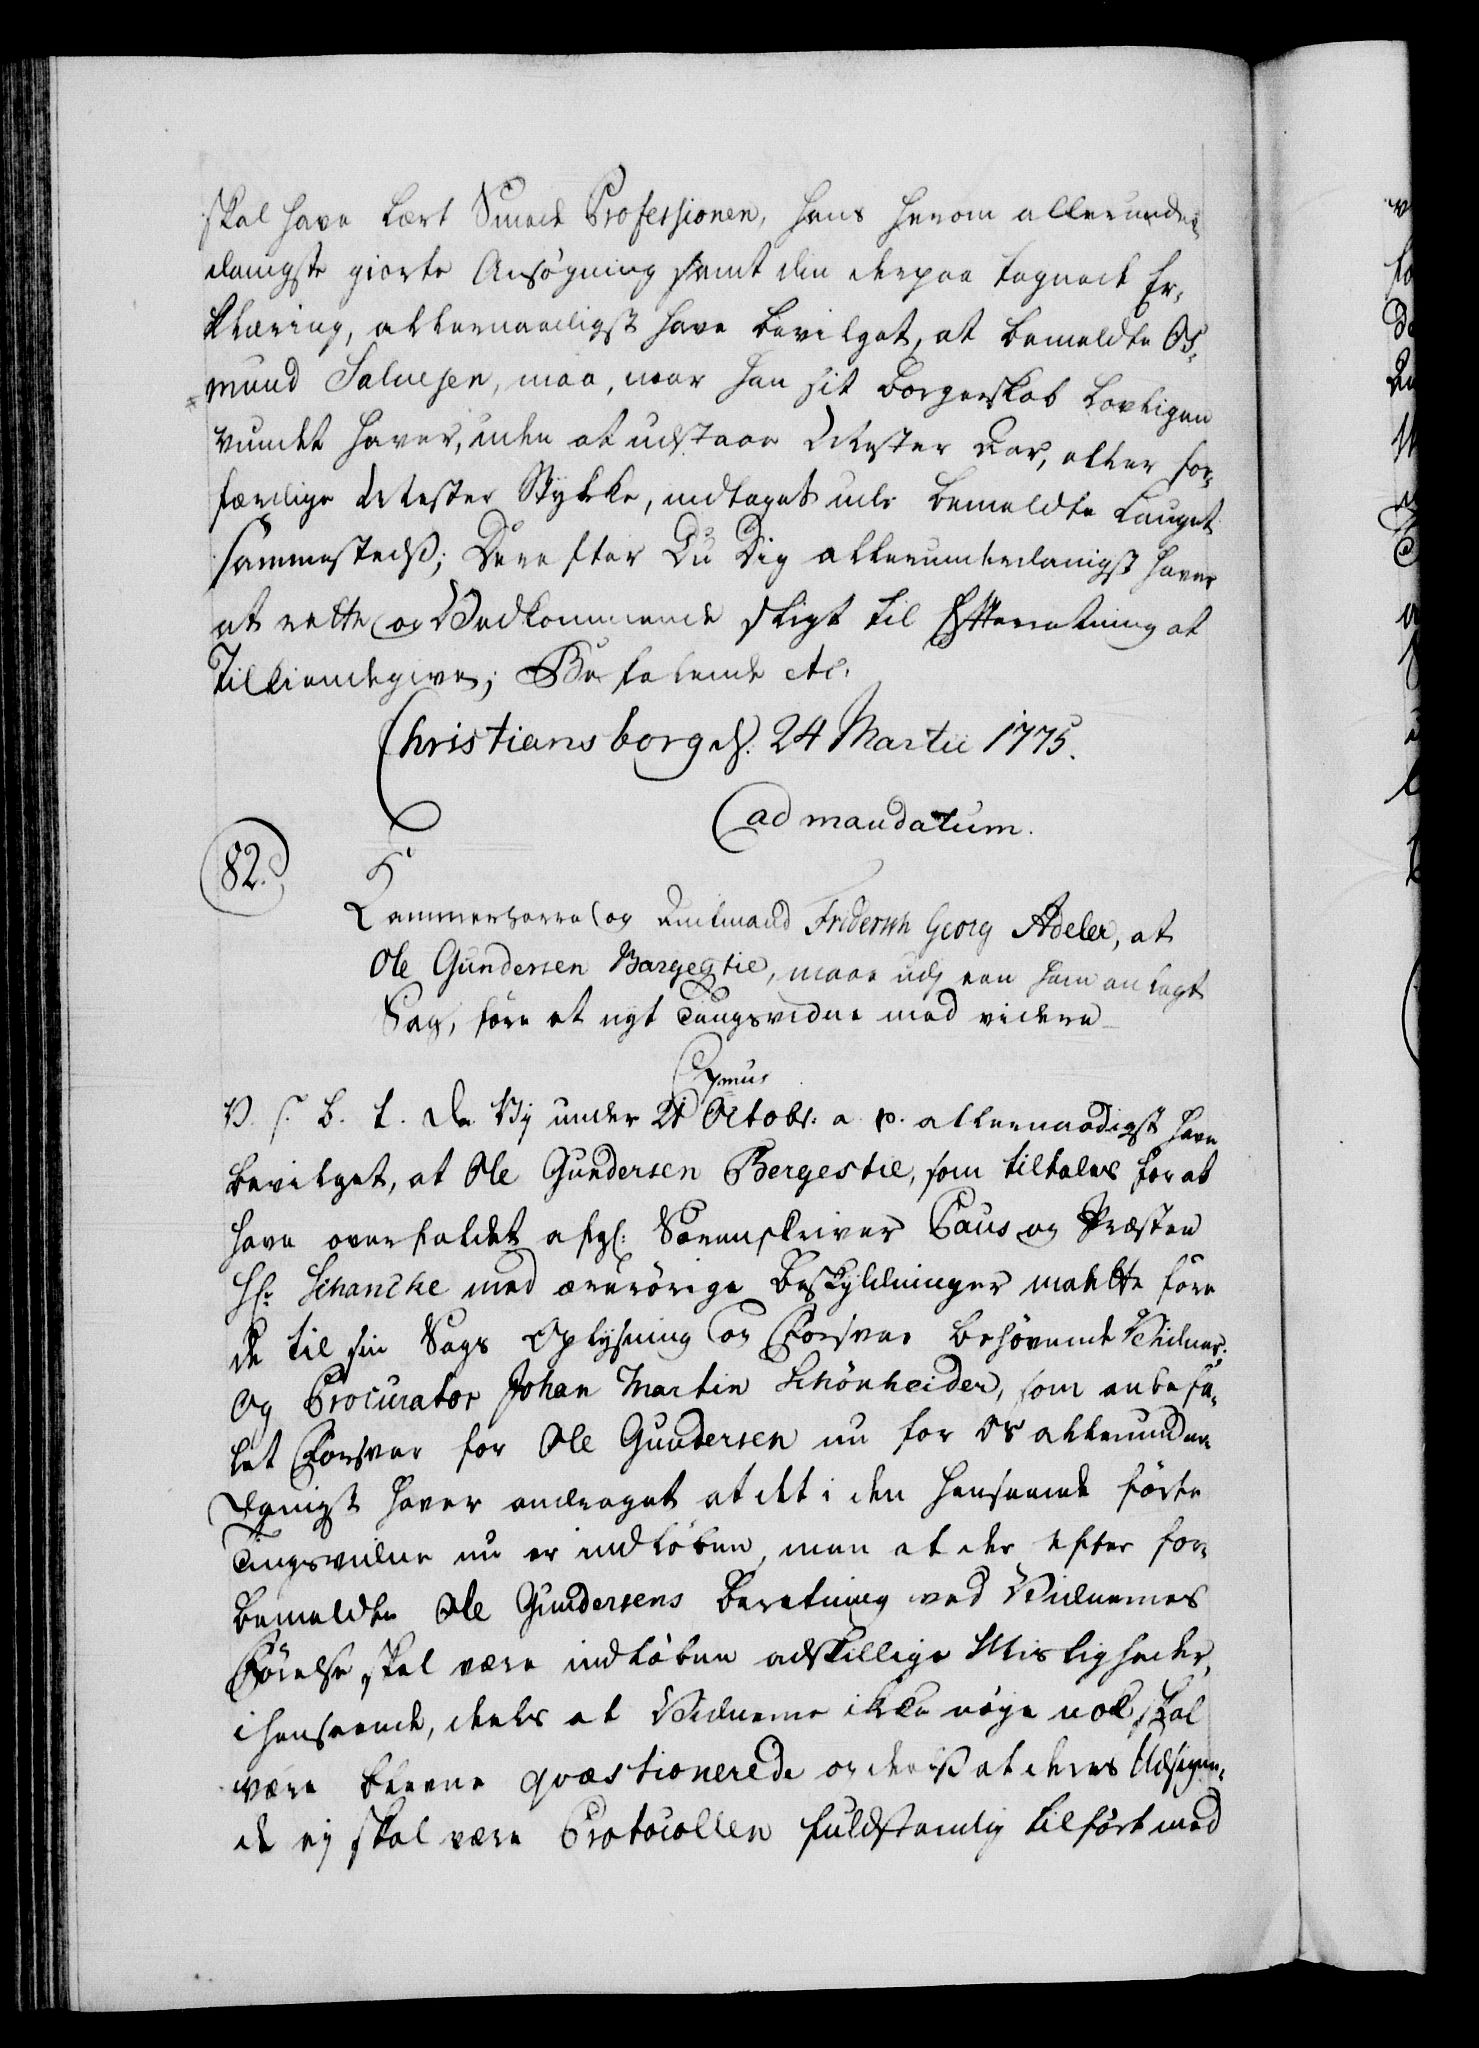 skal have lært Smed Professionen, hans herom allerunder-
danigste giorte Ansøgning samt din derpaa tegnede Er-
klæring, allernaadigst have bevilget, at bemeldte Os-
mund Salvesen, maa, naar han sit Borgerskab lovligen
vundet haver, uden at udstaae Mester Aar, eller for-
færdige Mester Stykke, indtaget udi bemeldte Lauget
sammestedß; Derefter Du Dig allerunderdanigst haver
at rette og Vedkommende sligt til Efterretning at
Tilkiendegive; Befalende etc.
Christiansborg d. 24 Martii 1775.
ad mandatum.
82.
Kammerherre og Amtmand Friderich Georg Adeler, at
Ole Gundersen Bergestie, maae udj een ham anlagt
Sag, føre et nyt Tingsvidne med videre
7mus
V. S. B. t. Da Vij under 21 Octobr: a. p. allernaadigst have
bevilget, at Ole Gundersen Bergestie, som tiltales for at
have overfaldet afg: Sorenskriver Paus og Præsten
Hr: Schancke med ærerörige Beskyldninger maatte føre
de til sin Sags Oplysning og Forsvar behøvende Vidner;
Og Procurator Johan Martin Schönheider, som anbefa-
let Forsvar for Ole Gundersen nu for Os allerunder-
danigst haver andraget at det i den Henseende førte
Tingsvidne nu er indløben, men at der efter for-
bemeldte Ole Gundersens Beretning ved Vidnernes
Førelse skal være indløben adskillige Misligheder,
i henseende, deels at Vidnerne ikke nøye nok skal
være blevne qvæstionerede og deelß at deres Udsigen-
de ej skal være Protocollen fuldstændig tilført med